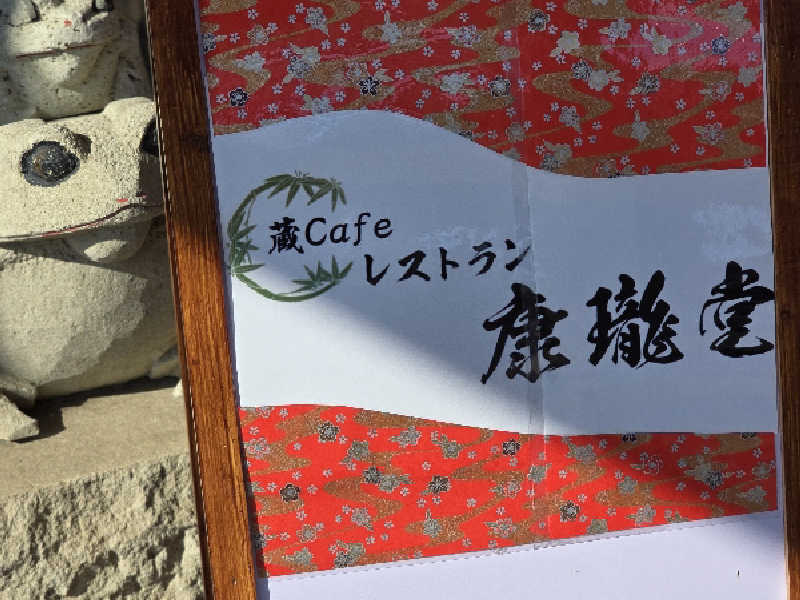 蔵Cafe
レストラン
康瓏堂